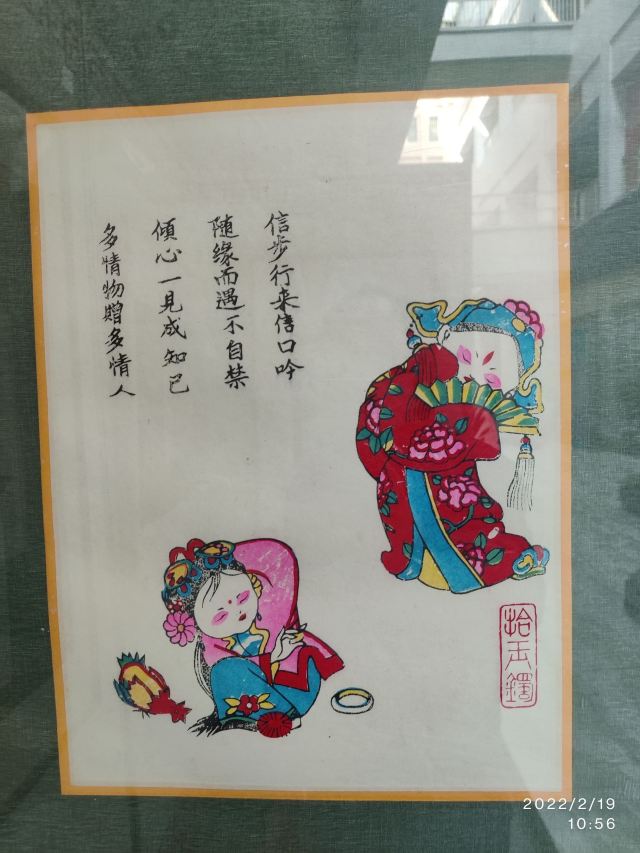 信步行来信口吟
随缘而遇不自禁
倾心一见成知已
多情物赠多情人
拾玉镯
2022/2/19
10:56